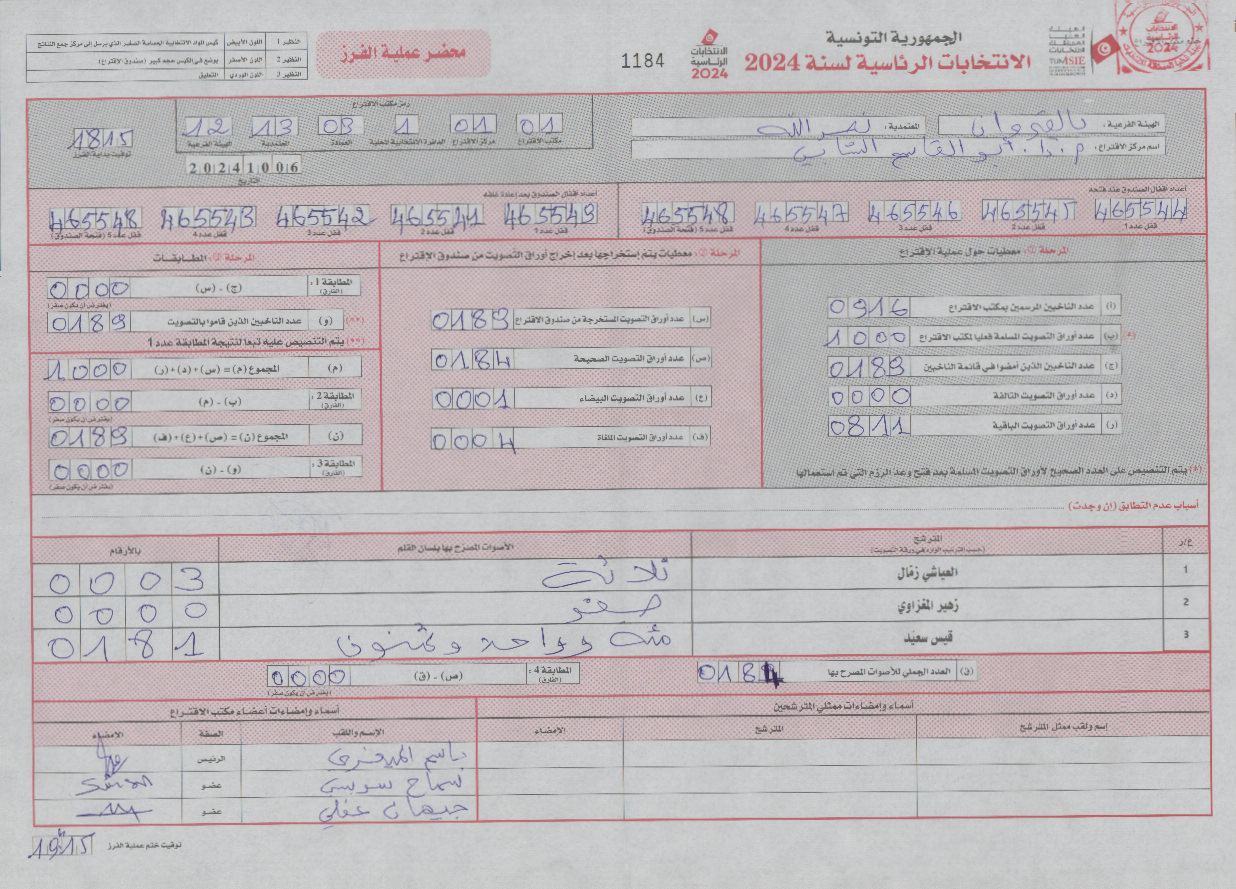 الجمهورية التونسية
الانتخابات الرئاسية لسنة 2024
الانتخابات الرئاسية 2024
1184
محضر عملية الفرز
النظير 1 اللون الأبيض كيس المواد الانتخابية الحساسة الصغير الذي يرسل إلى مركز جمع النتائج
النظير 2 اللون الأصفر يوضع في الكيس حجم كبير (صندوق الإقتراع)
النظير 3 اللون الوردي التعليق
الهيئة الفرعية: بالقيروان المعتمدية: نصر الله
اسم مركز الاقتراع: أبو القاسم الشابي
رمز مكتب الاقتراع
01 01 1 03 13 12
مكتب الاقتراع مركز الاقتراع الدائرة الانتخابية المحلية العمادة المعتمدية الهيئة الفرعية
1815
توقيت بداية الفرز
20241006
التاريخ
أعداد اقفال الصندوق عند فتحه
465544 465545 465546 465547 465548
قفل عدد 1 قفل عدد 2 قفل عدد 3 قفل عدد 4 قفل عدد 5 (فتحة الصندوق)
أعداد اقفال الصندوق بعد إعادة غلقه
465549 465541 465542 465543 465548
قفل عدد 1 قفل عدد 2 قفل عدد 3 قفل عدد 4 قفل عدد 5 (فتحة الصندوق)
المرحلة ①: معطيات حول عملية الاقتراع
(أ) عدد الناخبين المرسمين بمكتب الاقتراع 0916
(*) (ب) عدد أوراق التصويت المسلمة فعليا لمكتب الاقتراع 1000
(ج) عدد الناخبين الذين أمضوا في قائمة الناخبين 0189
(د) عدد أوراق التصويت التالفة 0000
(ر) عدد أوراق التصويت الباقية 0811
(*) يتم التنصيص على العدد الصحيح لأوراق التصويت المسلمة بعد فتح وعد الرزم التي تم استعمالها
المرحلة ②: معطيات يتم إستخراجها بعد إخراج أوراق التصويت من صندوق الاقتراع
(س) عدد أوراق التصويت المستخرجة من صندوق الاقتراع 0189
(ص) عدد أوراق التصويت الصحيحة 0184
(ع) عدد أوراق التصويت البيضاء 0001
(ف) عدد أوراق التصويت الملغاة 0004
المرحلة ③: المطابقات
المطابقة 1: (الفارق) (ج) - (س) 0000
(يفترض أن يكون صفر)
(**) (و) عدد الناخبين الذين قاموا بالتصويت 0189
(**) يتم التنصيص عليه تبعا لنتيجة المطابقة عدد 1
(م) المجموع (م) = (س) + (د) + (ر) 1000
المطابقة 2: (الفارق) (ب) - (م) 0000
(يفترض أن يكون صفر)
(ن) المجموع (ن) = (ص) + (ع) + (ف) 0189
المطابقة 3: (الفارق) (و) - (ن) 0000
(يفترض أن يكون صفر)
أسباب عدم التطابق (إن وجدت)
ع/ر المترشح (حسب الترتيب الوارد في ورقة التصويت) الأصوات المصرح بها بلسان القلم بالأرقام
1 العياشي زمّال ثلاثة 0003
2 زهير المغزاوي صفر 0000
3 قيس سعيّد مئة وواحد وثمنون 0181
(ق) العدد الجملي للأصوات المصرح بها 0184
المطابقة 4: (الفارق) (ص) - (ق) 0000
(يفترض أن يكون صفر)
أسماء وإمضاءات ممثلي المترشحين
إسم ولقب ممثل المترشح المترشح الإمضاء
أسماء وإمضاءات أعضاء مكتب الاقتراع
الإسم واللقب الصفة الإمضاء
باسم الرئيس
سماح سويسي عضو
جيهان عقلي عضو
توقيت ختم عملية الفرز 1915